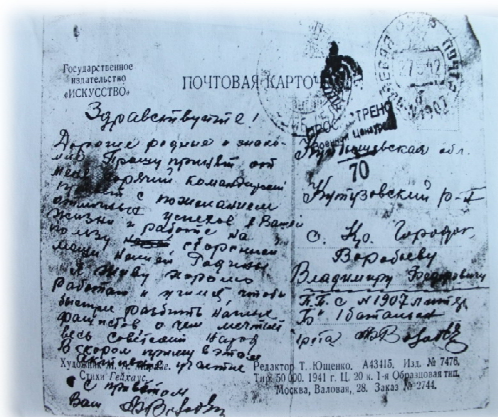 Государственное
издательство
«ИСКУССТВО»
ПОЧТОВАЯ КАРТОЧКА
ПРОСМОТРЕНО
Военной Цензурой
70
Здравствуйте!
Дорогие родные и знако-
мые. Прошу принять от
меня горячий командирский
привет с пожеланием
отличных успехов в Вашей
жизни и работе на
пользу
мощи нашей Родины
Я живу хорошо
работаю и учимся чтобы
быстрей разбить
фашистов о чем мечтает
весь советский народ
В скором приму в этом
участие
С приветом
Ваш
Куйбышевская обл.
Кутузовский р-н
с.
Воробьеву
Владимиру
П.П.С №1907 литер
"Б" 1 батальон
рота
Художник
Стихи
Редактор Т. Ющенко. А43415. Изд. № 7478.
Тир. 50 000. 1941 г. Ц. 20 к. 1-я Образцовая тип.
Москва, Валовая, 28. Заказ № 2744.